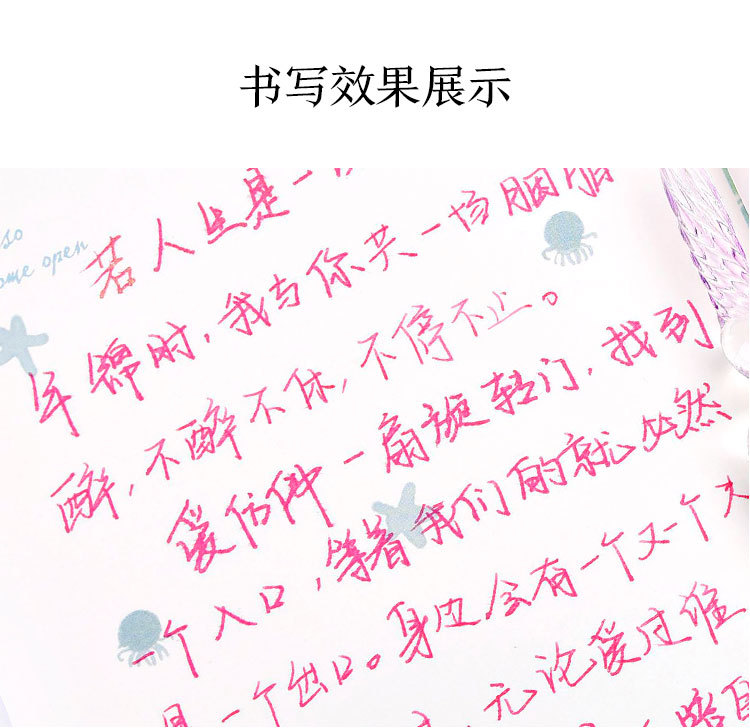 书写效果展示
so
ome open
若人生是一
年锦时，我与你共一场胭脂
醉，不醉不休，不停不止。
爱仿佛一扇旋转门，找到
一个入口，等着我们的就必然
是一个出口。身边会有一个又一个
，无论爱过谁